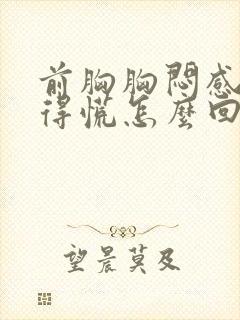 前胸胸悶感
得慌怎麼回
望晨莫及